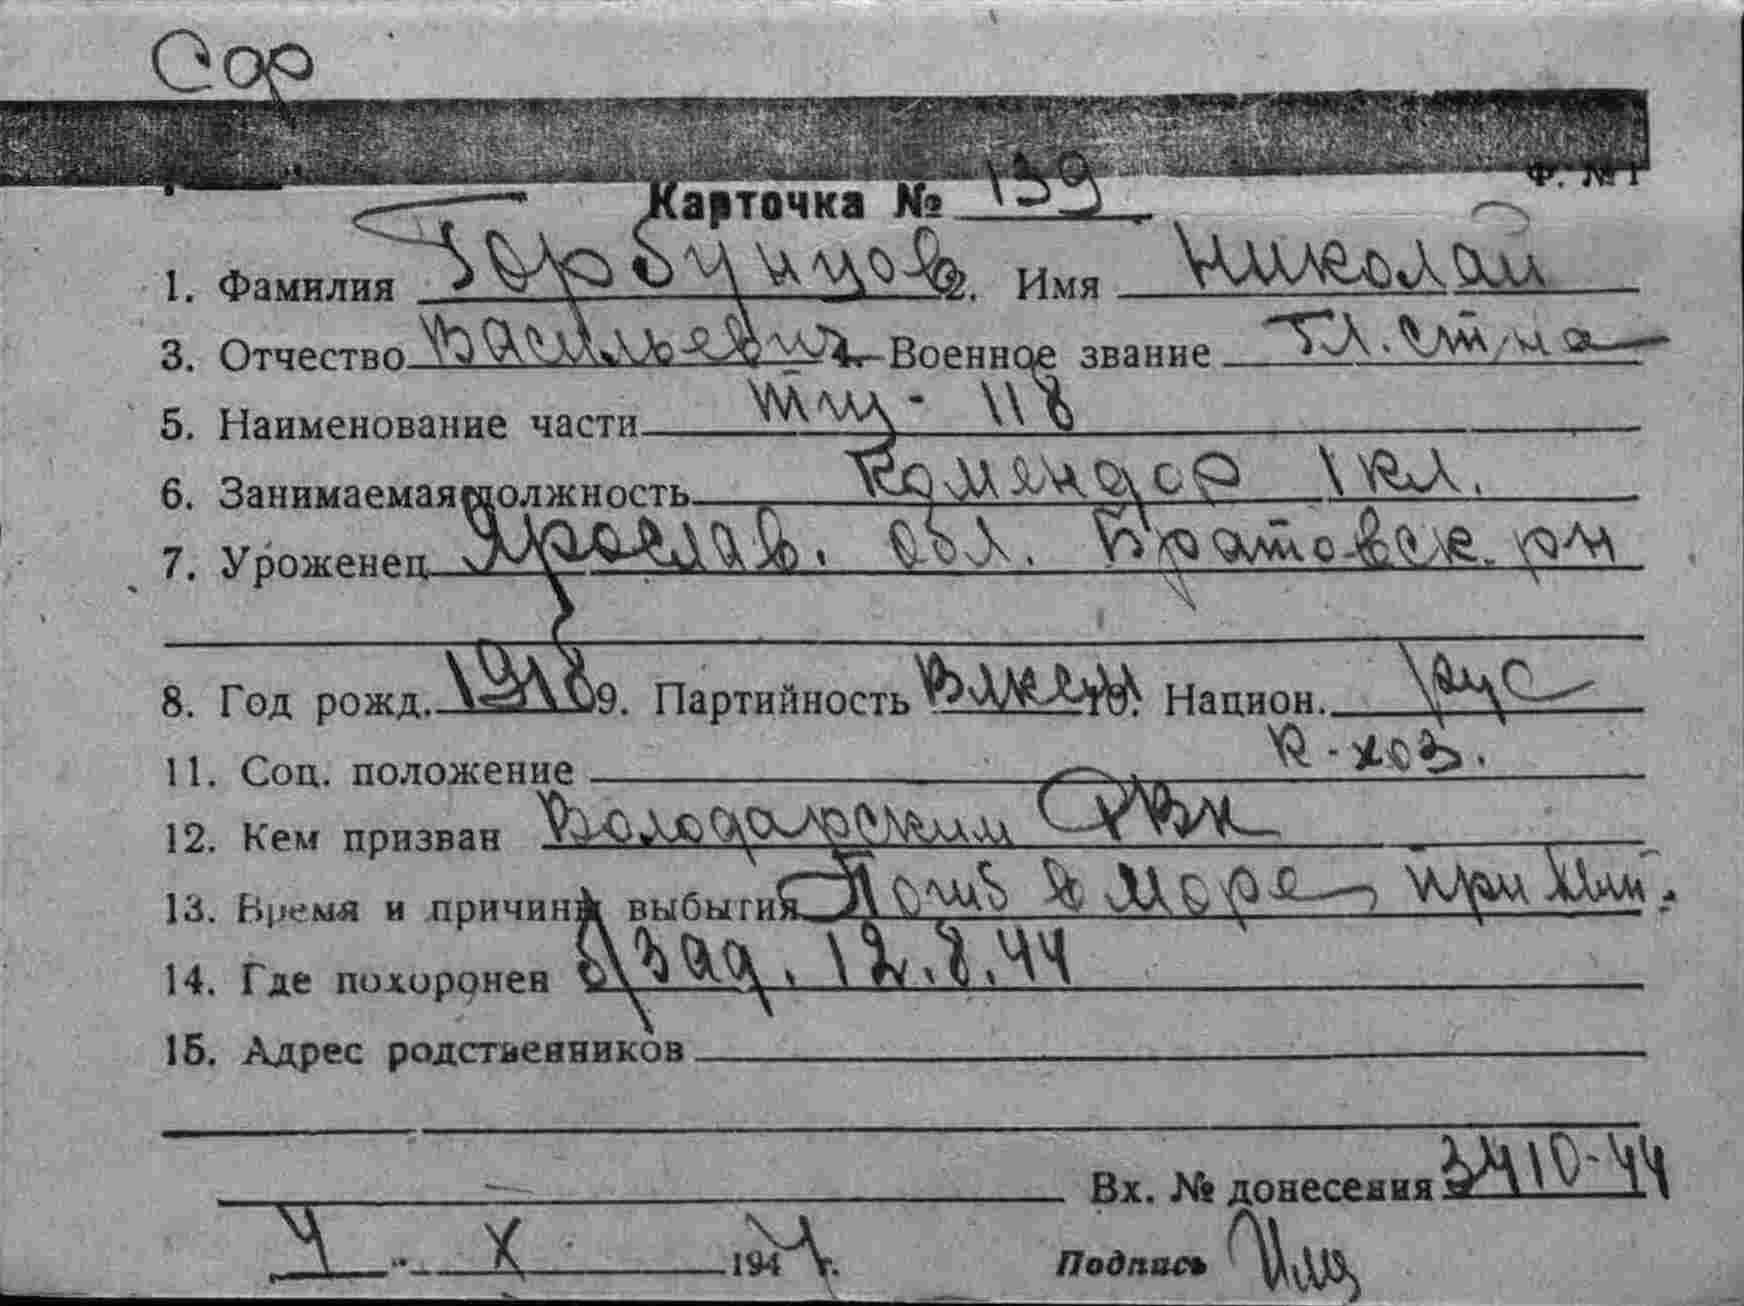 Сдр
Ф. №1
Карточка № 139
1. Фамилия Горбунцов 2. Имя Николай
3. Отчество Васильевич 4. Военное звание Гл. ст-на
5. Наименование части тщ - 118
6. Занимаемая должность Комендор 1 кл.
7. Уроженец Ярослав. обл. Братовск. рн
8. Год рожд. 1918 9. Партийность ВЛКСМ 10. Национ. рус
11. Соц. положение к-хоз.
12. Кем призван Володарским РВК
13. Время и причины выбытия Погиб в море, при
14. Где похоронен б/зад. 12.8.44
15. Адрес родственников
Вх. № донесения 3410-44
4 X 1944 г. Подпись